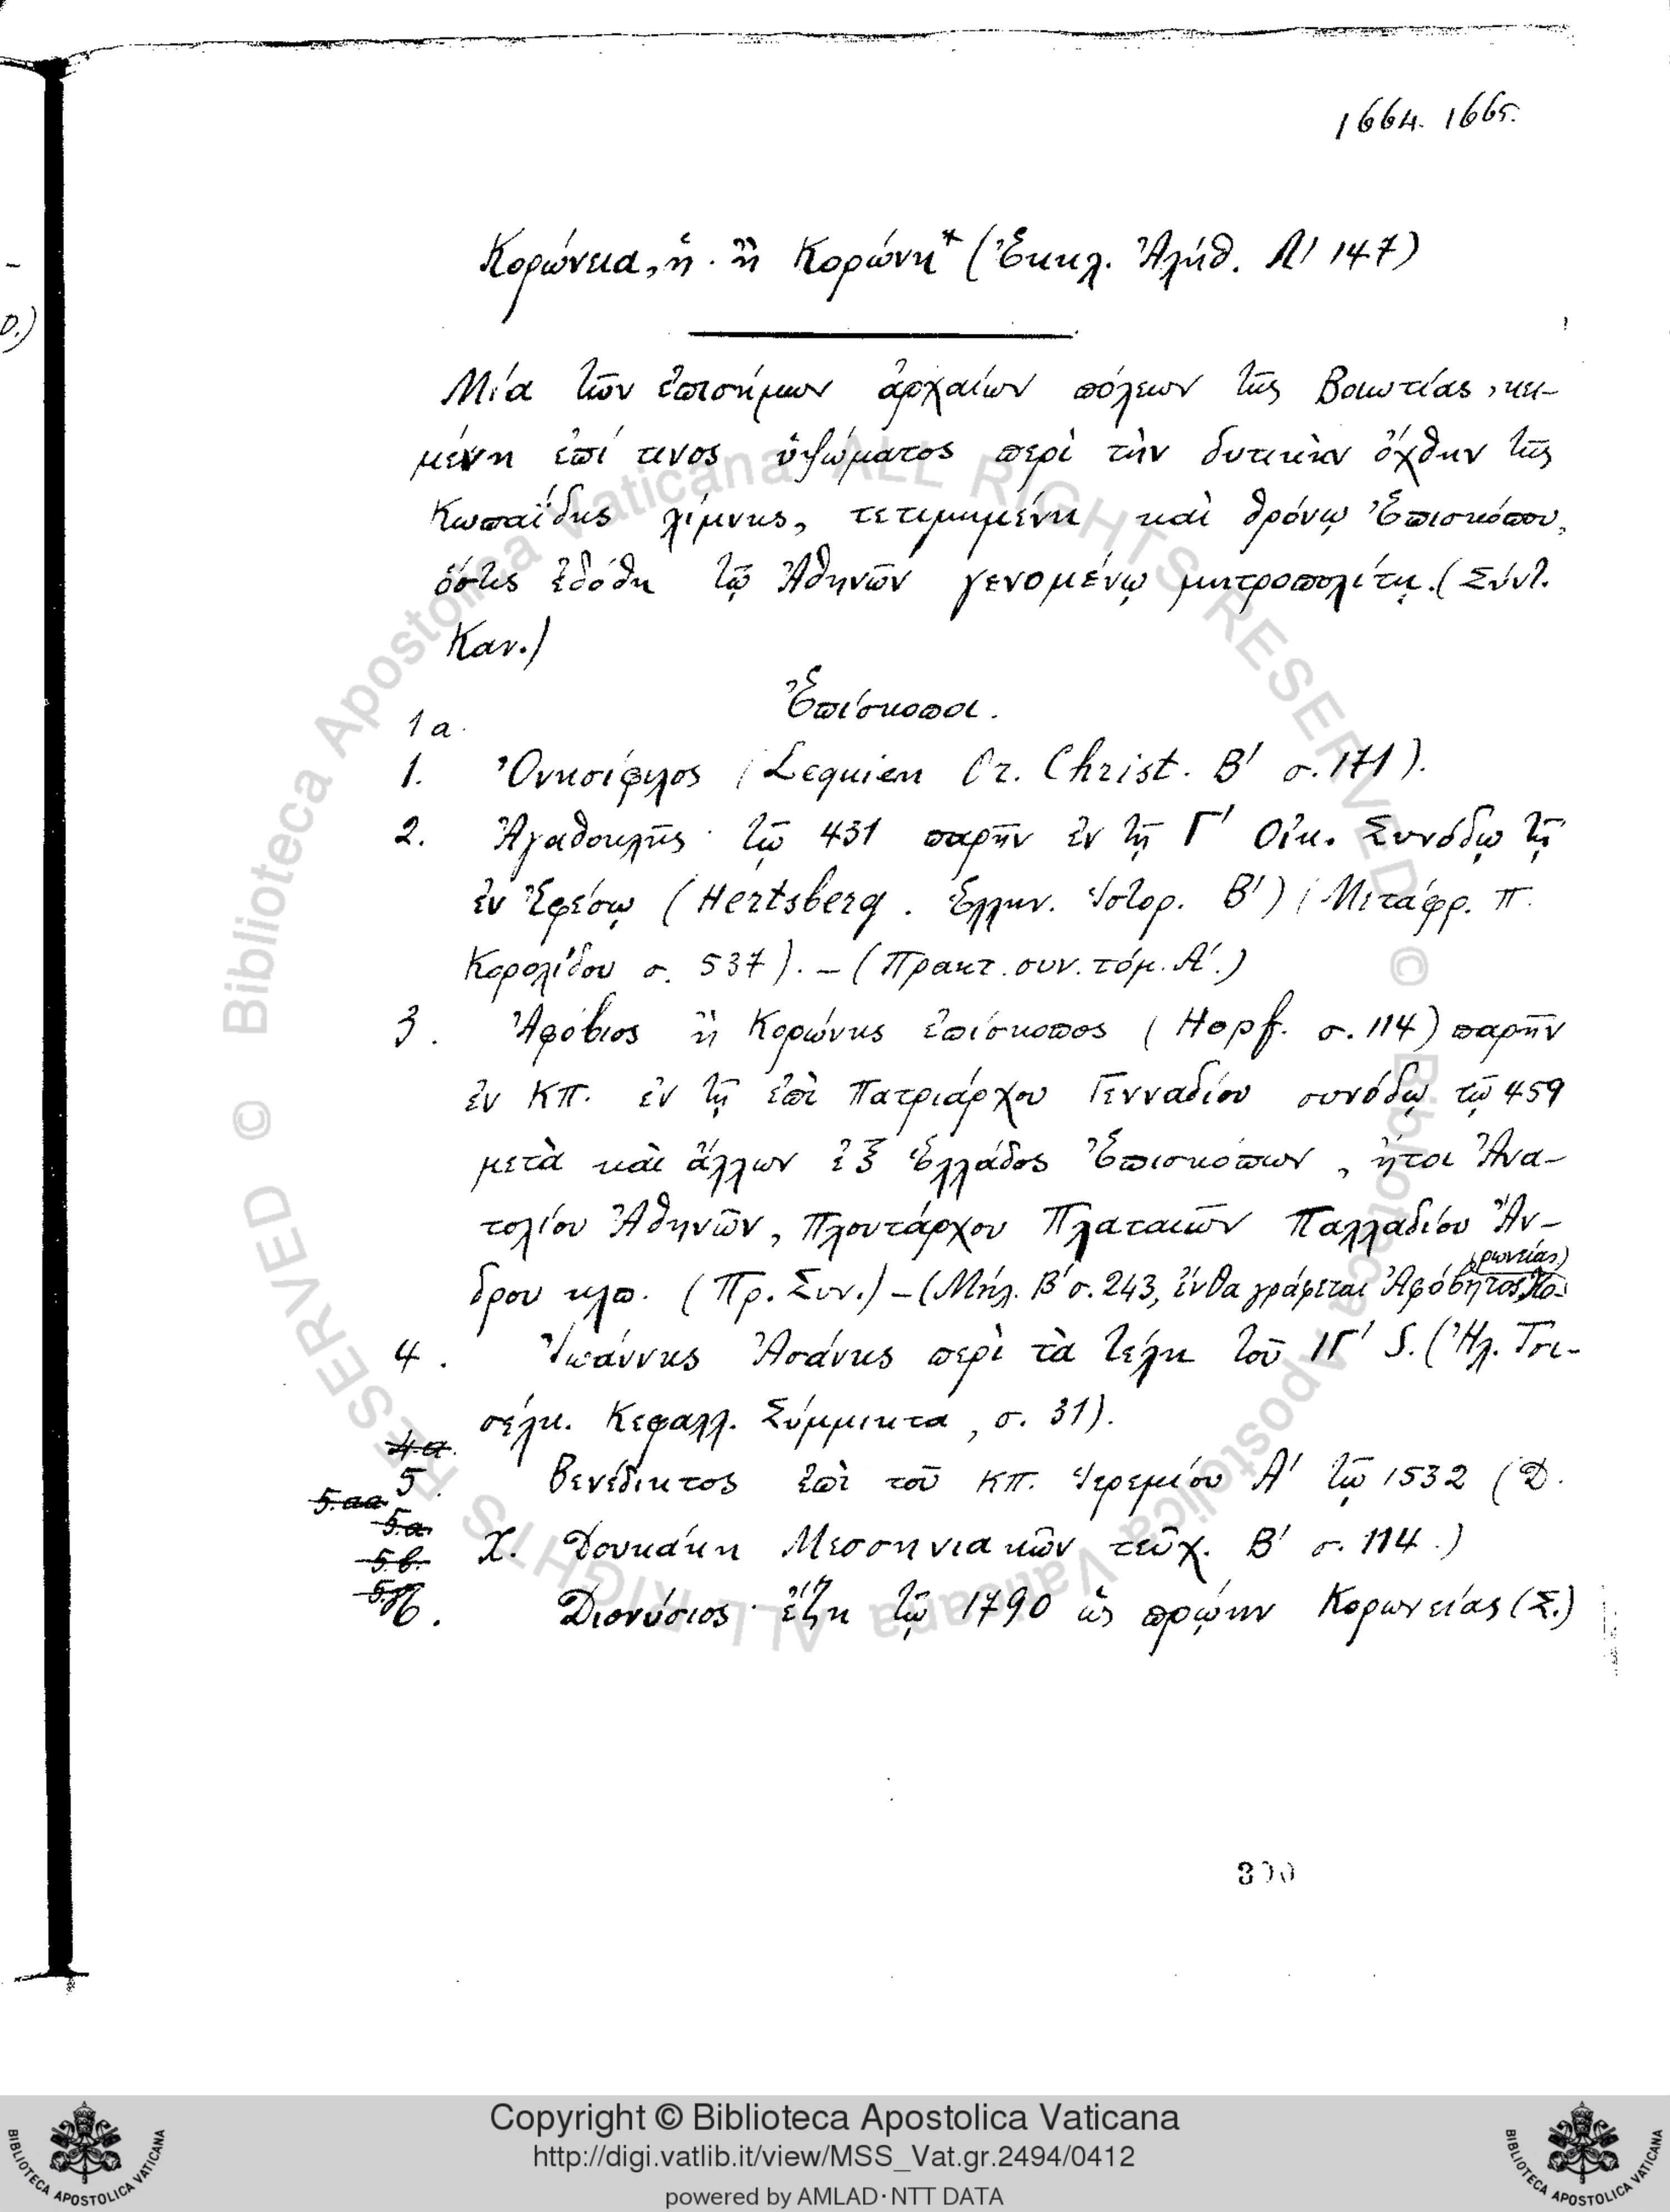 1664. 1665.
Κορώνεια, ἡ· ἢ Κορώνη* (Ἐκκλ. Ἀλήθ. Λ' 147)
Μία τῶν ἐπισήμων ἀρχαίων πόλεων τῆς Βοιωτίας, κει-
μένη ἐπί τινος ὑψώματος περὶ τὴν δυτικὴν ὄχθην τῆς
Κωπαΐδης λίμνης, τετιμημένη καὶ θρόνῳ Ἐπισκόπου,
ὅστις ἐδόθη τῷ Ἀθηνῶν γενομένῳ μητροπολίτῃ. (Σύντ.
Καν.)
Ἐπίσκοποι.
1α.
1. Ὀνησίφιλος (Lequien Or. Christ. Β' σ. 171).
2. Ἀγαθοκλῆς· τῷ 431 παρῆν ἐν τῇ Γ' Οἰκ. Συνόδῳ τῇ
ἐν Ἐφέσῳ (Hertsberg. Ἑλλην. Ἱστορ. Β') (Μετάφρ. Π.
Καρολίδου σ. 537). – (Πρακτ. συν. τόμ. Α'.)
3. Ἀφόβιος ἢ Κορώνης ἐπίσκοπος (Hopf. σ. 114) παρῆν
ἐν ΚΠ. ἐν τῇ ἐπὶ Πατριάρχου Γενναδίου συνόδῳ τῷ 459
μετὰ καὶ ἄλλων ἐξ Ἑλλάδος Ἐπισκόπων, ἤτοι Ἀνα-
τολίου Ἀθηνῶν, Πλουτάρχου Πλαταιῶν Παλλαδίου Ἄν-
δρου κλπ. (Πρ. Συν.) – (Μήλ. Β' σ. 243, ἔνθα γράφεται Ἀφόβητος Κο-
ρωνείας)
4. Ἰωάννης Ἀσάνης περὶ τὰ τέλη τοῦ ΙΓ' S. (Ἠλ. Τσι-
σέλη. Κεφαλλ. Σύμμικτα, σ. 31).
4α.
5. Βενέδικτος ἐπὶ τοῦ ΚΠ. Ἱερεμίου Α' τῷ 1532 (Δ.
5.αα
5.α.
Χ. Δουκάκη Μεσσηνιακῶν τεῦχ. Β' σ. 114.)
5.β.
6. Διονύσιος· ἔζη τῷ 1790 ὡς πρώην Κορωνείας (Σ.)
300
© Biblioteca Apostolica Vaticana ALL RIGHTS RESERVED
© Biblioteca Apostolica Vaticana ALL RIGHTS RESERVED
Copyright © Biblioteca Apostolica Vaticana
http://digi.vatlib.it/view/MSS_Vat.gr.2494/0412
powered by AMLAD·NTT DATA
BIBLIOTECA APOSTOLICA VATICANA
BIBLIOTECA APOSTOLICA VATICANA